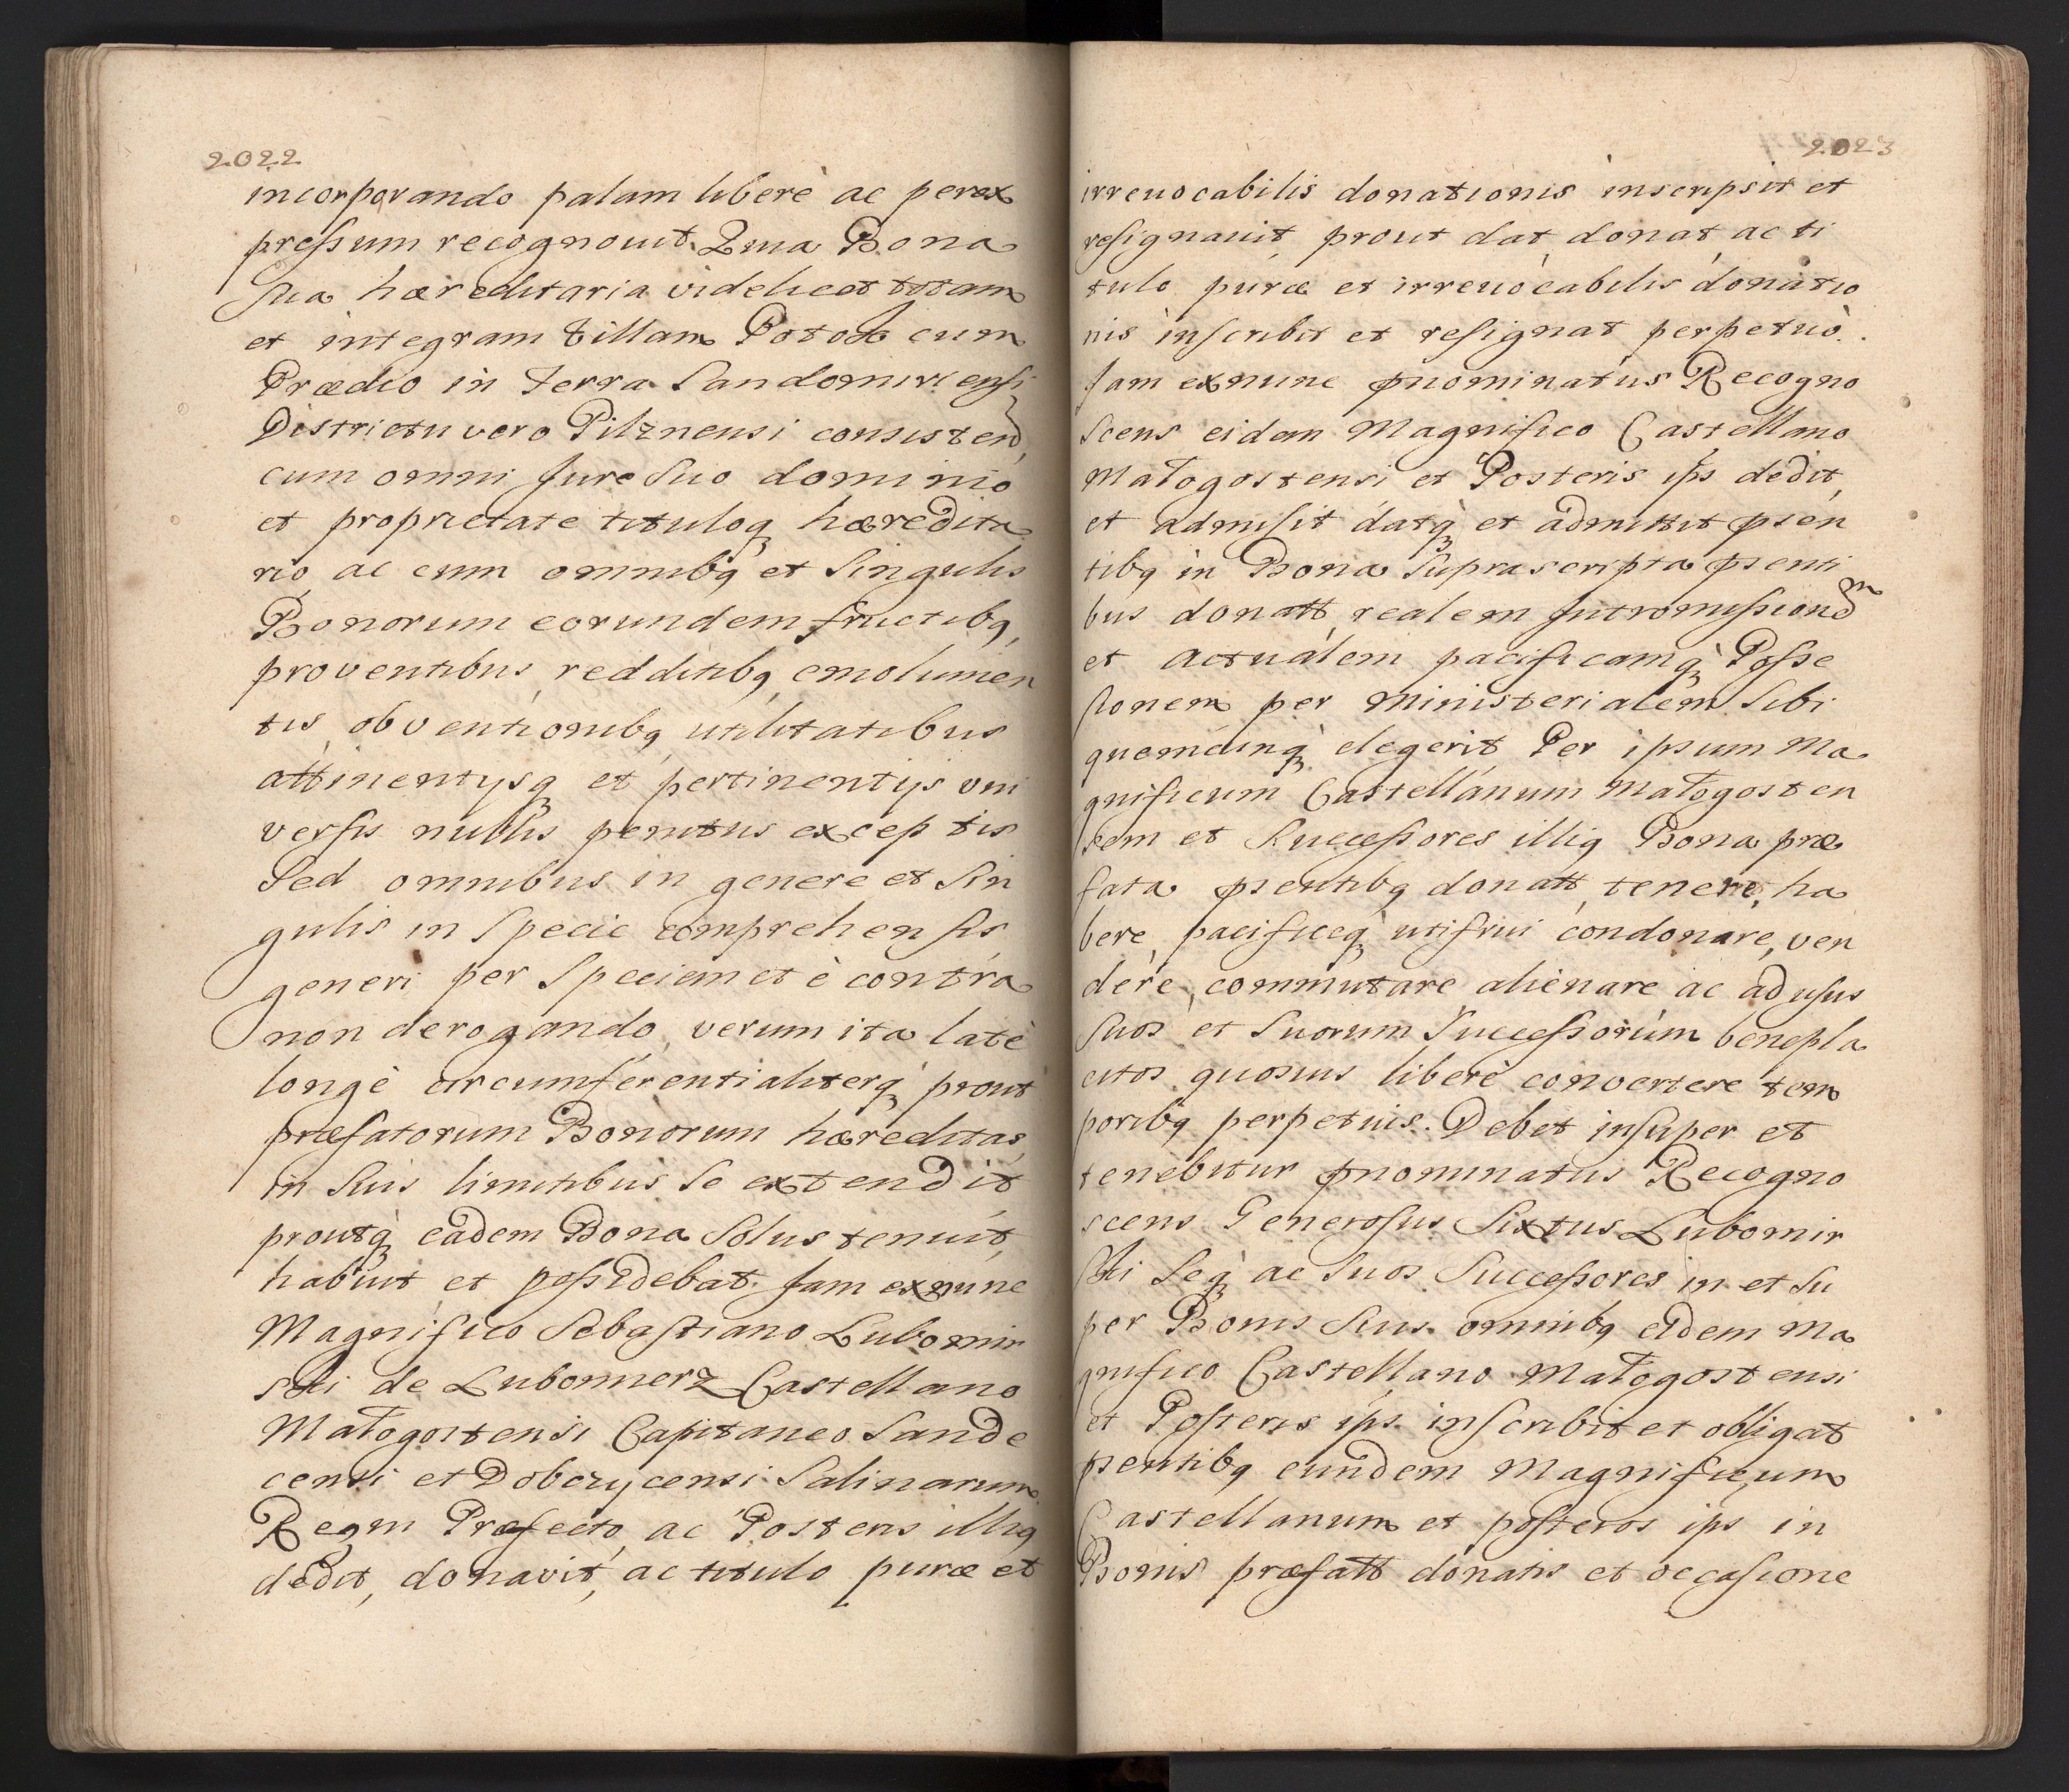 2022
incorporando palam liberè ac perex
pressum recognovit. Quia Bona
sua hæreditaria videlicet totam
et integram Villam Potok cum
Prædio in Terra Sandomiriensi
Districtu vero Pilznensi consisten
cum omni Jure Suo dominio
et proprietate tituloq hæredita
rio, ac cum omnibq et Singulis
Bonorum eorundem fructibq,
proventibus, redditibq, emolumen
tis obventionibq utilitatibus
attinentysq et pertinentijs vni
versis nullis penitus exceptis
Sed omnibus in genere et Sin
gulis in Specie comprehensis,
generi per Speciem et è contra
non derogando, verum ita latè
longè circumferentialiterq prout
præfatorum Bonorum hæreditas
in Suis limitibus Se extendit
proutq eadem Bona Solus tenuit,
habuit et possidebat. Jam exnunc
Magnifico Sebastiano Lubomir
ski de Lubomierz Castellano
Małogostensi Capitaneo Sande
censi et Dobczycensi Salinarum
Regni Præfecto, ac Posteris illiq
dedit, donavit, ac titulo puræ et
2023
irreuocabilis donationis inscripsit et
resignauit, prout dat, donat ac ti
tulo puræ et irreuocabilis donatio
nis inscribit et resignat perpetuò.
Jam exnunc pnominatus Recogno
Scens eidem Magnifico Castellano
Małogostensi et Posteris ips dedit,
et admisit datq et admittit psen
tibq in Bona Suprascripta psenti
bus donatt realem Intromissionem
et actualem pacificamq Posse
ssionem per Ministerialem Sibi
quemcunq elegerit Per ipsum Ma
gnificum Castellanum Małogosten
sem et Successores illiq Bona præ
fata psentibq donatt, tenere, ha
bere, pacificeq utifrui condonare, ven
dere, commutare alienare ac ad usus
Suos et Suorum Successorum benepla
citos quosuis liberè convertere tem
poribq perpetuis. Debet insuper et
tenebitur pnominatus Recogno
scens Generosus Sixtus Lubomir
ski Seq ac Suos Successores in et Su
per Bonis Suis omnibq eidem Ma
gnifico Castellano Małogostensi
et Posteris ips inscribit et obligat
psentibq eundem Magnificum
Castellanum et posteros ips in
Bonis præfatt donatis et occasione